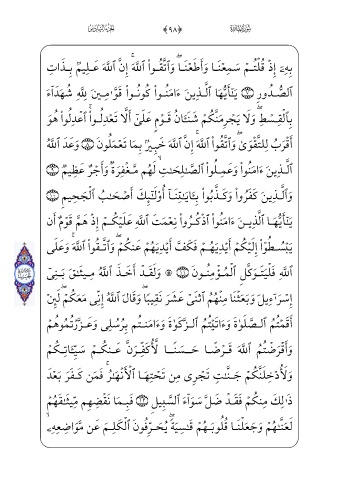 سورة المائدة ﴿٩٨﴾ الجزء السادس
بِهِۦٓ إِذْ قُلْتُمْ سَمِعْنَا وَأَطَعْنَاۖ وَٱتَّقُواْ ٱللَّهَۚ إِنَّ ٱللَّهَ عَلِيمُۢ بِذَاتِ
ٱلصُّدُورِ يَٰٓأَيُّهَا ٱلَّذِينَ ءَامَنُواْ كُونُواْ قَوَّٰمِينَ لِلَّهِ شُهَدَآءَ
بِٱلْقِسْطِۖ وَلَا يَجْرِمَنَّكُمْ شَنَـَٔانُ قَوْمٍ عَلَىٰٓ أَلَّا تَعْدِلُواْۚ ٱعْدِلُواْ هُوَ
أَقْرَبُ لِلتَّقْوَىٰۖ وَٱتَّقُواْ ٱللَّهَۚ إِنَّ ٱللَّهَ خَبِيرُۢ بِمَا تَعْمَلُونَ وَعَدَ ٱللَّهُ
ٱلَّذِينَ ءَامَنُواْ وَعَمِلُواْ ٱلصَّٰلِحَٰتِۙ لَهُم مَّغْفِرَةٌ وَأَجْرٌ عَظِيمٌ
وَٱلَّذِينَ كَفَرُواْ وَكَذَّبُواْ بِـَٔايَٰتِنَآ أُوْلَٰٓئِكَ أَصْحَٰبُ ٱلْجَحِيمِ
يَٰٓأَيُّهَا ٱلَّذِينَ ءَامَنُواْ ٱذْكُرُواْ نِعْمَتَ ٱللَّهِ عَلَيْكُمْ إِذْ هَمَّ قَوْمٌ أَن
يَبْسُطُوٓاْ إِلَيْكُمْ أَيْدِيَهُمْ فَكَفَّ أَيْدِيَهُمْ عَنكُمْۖ وَٱتَّقُواْ ٱللَّهَۚ وَعَلَى
ٱللَّهِ فَلْيَتَوَكَّلِ ٱلْمُؤْمِنُونَ ۞ وَلَقَدْ أَخَذَ ٱللَّهُ مِيثَٰقَ بَنِىٓ
إِسْرَٰٓءِيلَ وَبَعَثْنَا مِنْهُمُ ٱثْنَىْ عَشَرَ نَقِيبًاۖ وَقَالَ ٱللَّهُ إِنِّى مَعَكُمْۖ لَئِنْ
أَقَمْتُمُ ٱلصَّلَوٰةَ وَءَاتَيْتُمُ ٱلزَّكَوٰةَ وَءَامَنتُم بِرُسُلِى وَعَزَّرْتُمُوهُمْ
وَأَقْرَضْتُمُ ٱللَّهَ قَرْضًا حَسَنًا لَّأُكَفِّرَنَّ عَنكُمْ سَيِّـَٔاتِكُمْ
وَلَأُدْخِلَنَّكُمْ جَنَّٰتٍ تَجْرِى مِن تَحْتِهَا ٱلْأَنْهَٰرُۚ فَمَن كَفَرَ بَعْدَ
ذَٰلِكَ مِنكُمْ فَقَدْ ضَلَّ سَوَآءَ ٱلسَّبِيلِ فَبِمَا نَقْضِهِم مِّيثَٰقَهُمْ
لَعَنَّٰهُمْ وَجَعَلْنَا قُلُوبَهُمْ قَٰسِيَةًۖ يُحَرِّفُونَ ٱلْكَلِمَ عَن مَّوَاضِعِهِۦۙ